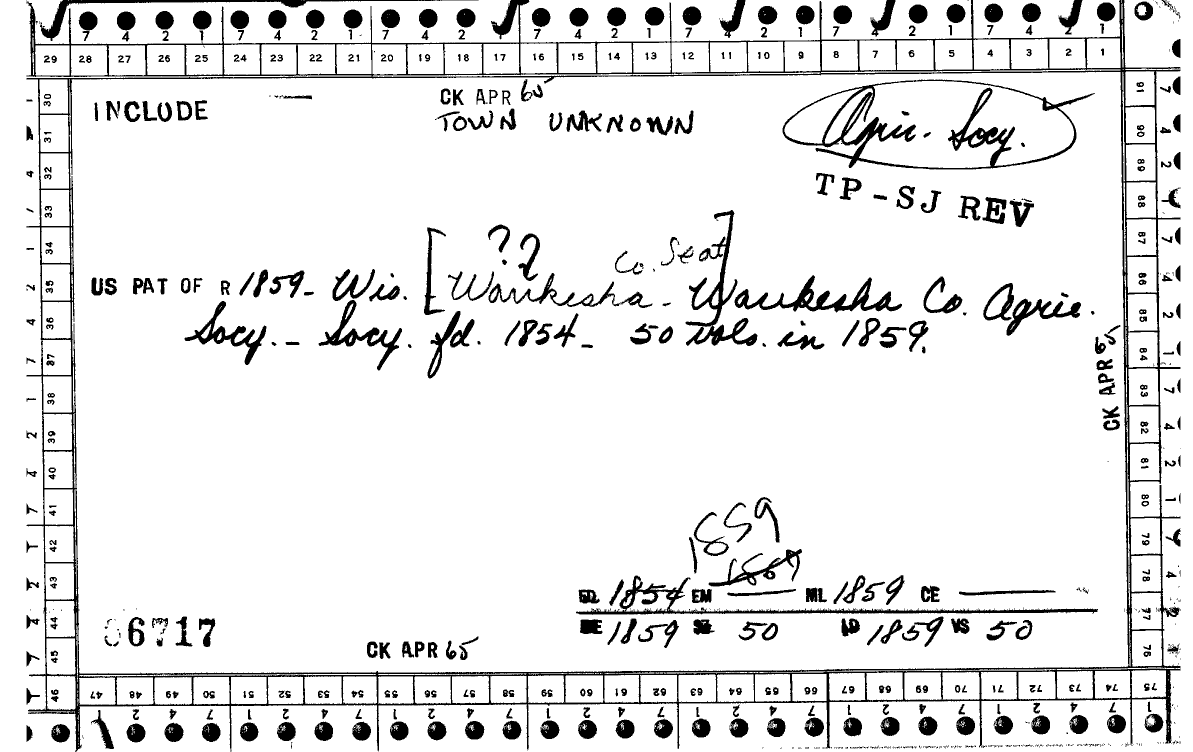 7 4 2 1 7 4 2 1 7 4 2 1 7 4 2 1 7 4 2 1 7 4 2 1 7 4 2 1
29 28 27 26 25 24 23 22 21 20 19 18 17 16 15 14 13 12 11 10 9 8 7 6 5 4 3 2 1
INCLUDE
CK APR 65
TOWN UNKNOWN
Agric. Socy.
TP-SJ REV
??
Co. Seat
US PAT OF R 1859- Wis. [Waukesha-] Waukesha Co. Agric.
Socy. - Socy. fd. 1854- 50 vols. in 1859.
CK APR 65
1859
1869
1854 EM ML 1859 CE
1859 50 1859 VS 50
6717
CK APR 65
30 31 32 33 34 35 36 37 38 39 40 41 42 43 44 45 46
91 90 89 88 87 86 85 84 83 82 81 80 79 78 77 76
47 48 49 50 51 52 53 54 55 56 57 58 59 60 61 62 63 64 65 66 67 68 69 70 71 72 73 74 75
1 2 4 7 1 2 4 7 1 2 4 7 1 2 4 7 1 2 4 7 1 2 4 7 1 2 4 7